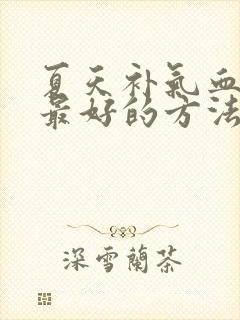 夏天补氣血
最好的方法
深雪蘭茶